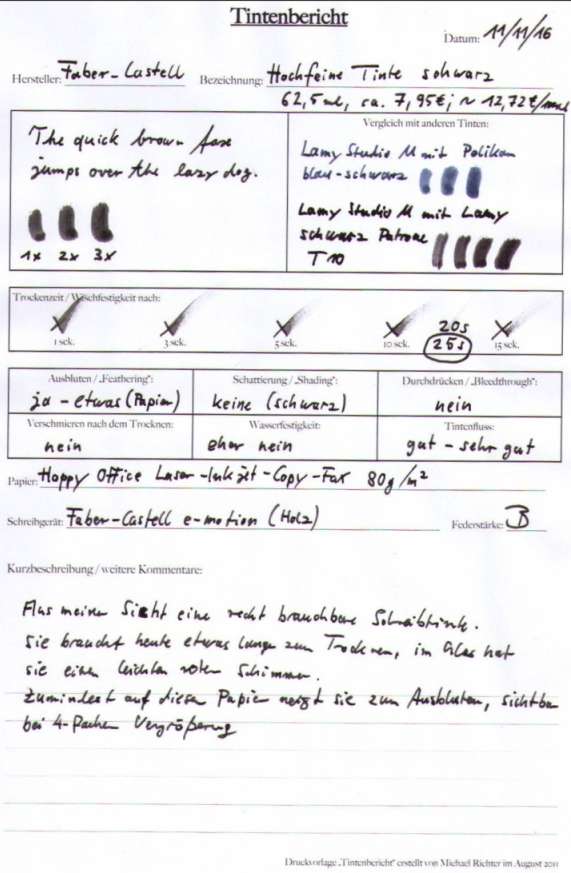 Tintenbericht
Datum: 11/11/16
Hersteller: Faber-Castell Bezeichnung: Hochfeine Tinte schwarz
62,5 ml, ca. 7,95€; ~ 12,72€/
The quick brown fox
jumps over the lazy dog.
1x 2x 3x
Vergleich mit anderen Tinten:
Lamy Studio M mit Pelikan
blau-schwarz
Lamy Studio M mit Lamy
schwarz Patrone
T10
Trockenzeit / Wischfestigkeit nach:
1 sek. 3 sek. 5 sek. 10 sek. 20s 15 sek.
25s
Ausbluten / „Feathering": Schattierung / „Shading": Durchdrücken / „Bleedthrough":
ja - etwas (Papier) keine (schwarz) nein
Verschmieren nach dem Trocknen: Wasserfestigkeit: Tintenfluss:
nein eher nein gut - sehr gut
Papier: Happy Office Laser-Inkjet-Copy-Fax 80g/m²
Schreibgerät: Faber-Castell e-motion (Holz) Federstärke: B
Kurzbeschreibung / weitere Kommentare:
Aus meiner Sicht eine recht brauchbare Schreibtinte.
Sie braucht heute etwas lange zum Trocknen, im Glas hat
sie einen leichten roten Schimmer.
Zumindest auf diesem Papier neigt sie zum Ausbluten, sichtbar
bei 4-fachen Vergrößerung
Druckvorlage „Tintenbericht" erstellt von Michael Richter im August 2011